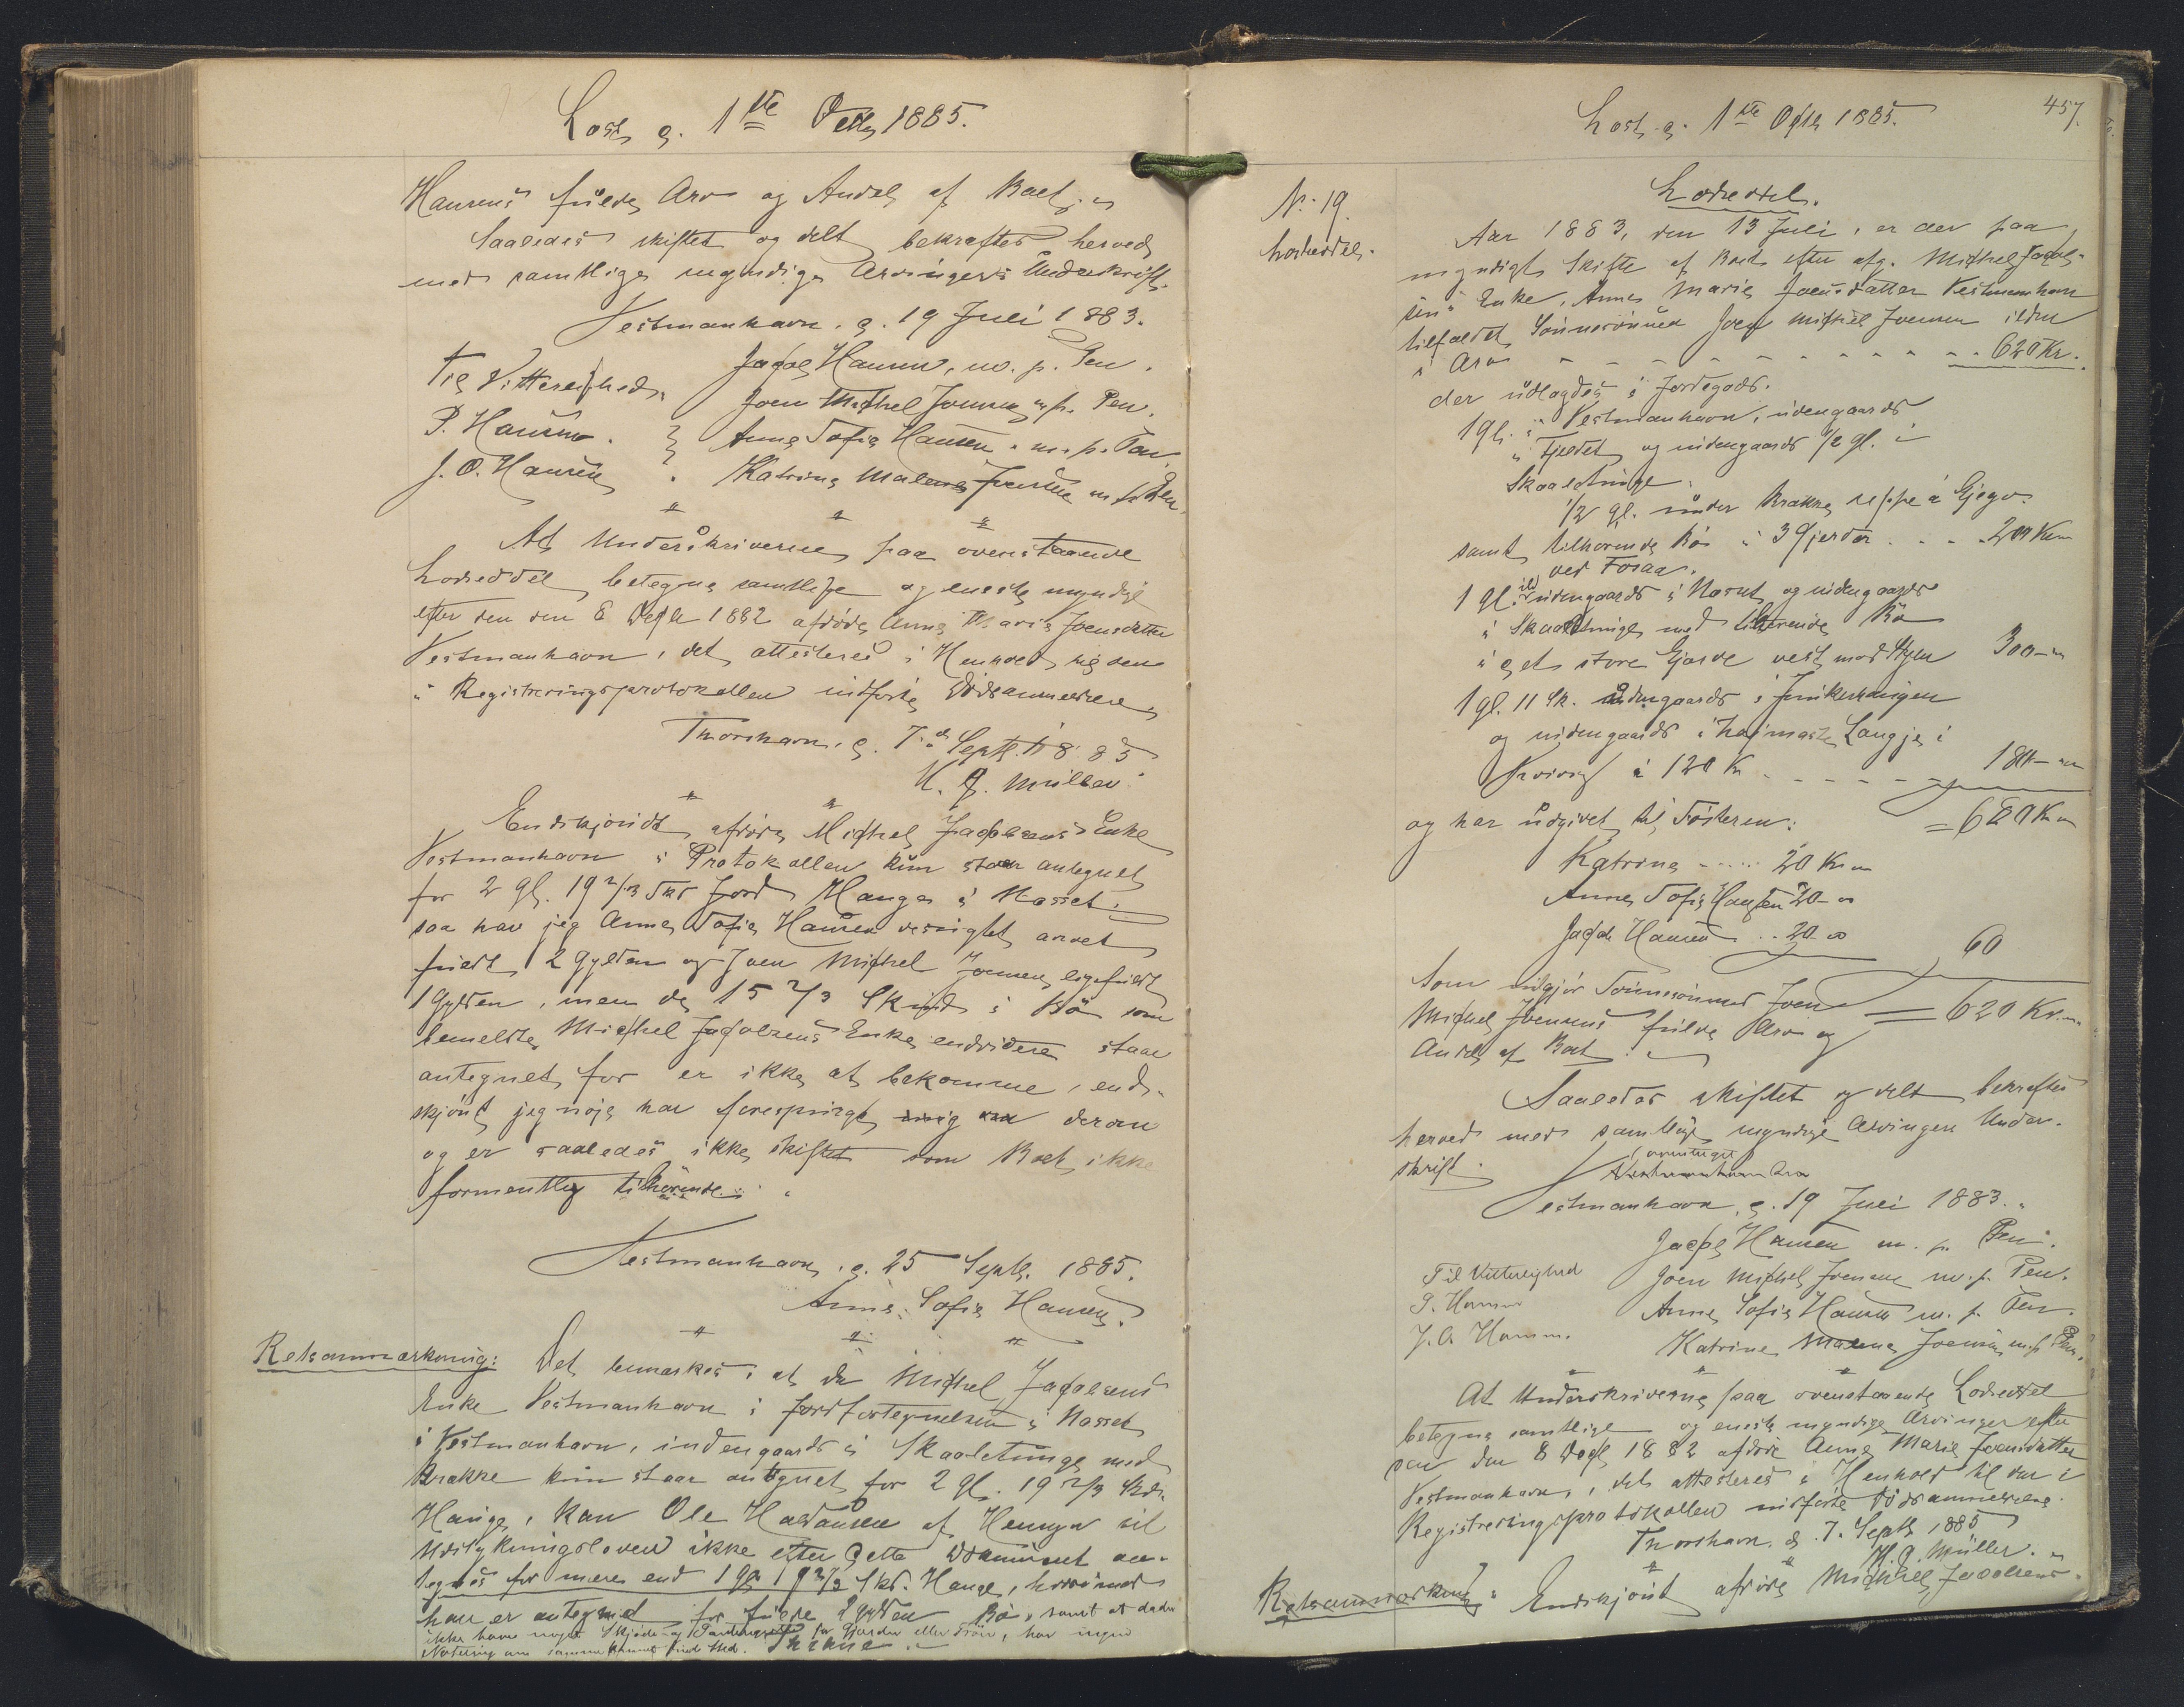 Læst, d. 1ste Octb 1885.
Hansens fulde Arv og Andel af Boet.
Saaledes skiftet og delt bekræftes herved
med samtlige myndige Arvingers Underskrift.
Vestmanhavn, d. 19 Juli 1883.
Jacob Hansen, m. p. Pen.
Til Vitterlighed,
Joen Michel Joensen m. p. Pen.
P. Hansen.
Anna Sofia Hansen, m. p. Pen
J. O. Hansen
Katrina Malena Joensen m. p. Pen.
At Underskriverne paa ovenstaaende
Lodseddel betegne samtlige og eneste myndige
efter den den 8 Decbr 1882 afdøde Anna Maria Joensdatter
Vestmanhavn, det attesteres i Henhold til den
i Registreringsprotokollen indførte Dødsanmeldelse
Thorshavn, d. 7de Septb. 1885
H. G. Müller.
Endskjöndt afdøde Michel Jacobsens Enke
Vestmanhavn i Protokollen kun staar antegnet
for 2 gl. 19 2/3 Skd Jord Hauge i Nesset.
saa har jeg Anna Sofia Hansen arvet
fuldt 2 Gylden og Joen Michel Joensen ligefuldt
1 Gylden, men de 15 2/3 Skind i Bö som
bemeldte Michel Jacobsens Enke endvidere staar
antegnet for er ikke at bekomme, end-
skjönt jeg nöje har forespurgt mig derom
og er saaledes ikke skiftet som Boet ikke
formentlig tilhörende.
Vestmanhavn, d. 25 Septb. 1885.
Anna Sofia Hansen.
Retsanmærkning: Det bemærkes, at da Michel Jacobsens
Enke Vestmanhavn i Jordfortegnelsen i Nesset
i Vestmanhavn, indengaards i Skaaletunge med
Brække kun staar antegnet for 2 gl. 19 2/3 Skd.
Hauge, kan Ole af
Udstykningsloven ikke efter dette Document an-
tegnes for mere end 1 gl. 19 2/3 Skd. Hauge, hvorimod
han er antegnet for fulde 2 Gylden Bö, samt at
ikke have noget Skjøde og for eller, har ingen
Notering om samme
457.
Læst, d. 1ste Octb 1885.
No. 19.
Lodseddel.
Lodseddel.
Aar 1883, den 13 Juli, er der paa
myndigt Skifte af Boet efter afg. Michel Jacob-
sens Enke, Anna Maria Joensdatter Vestmanhavn
tilfaldet Sönnesönnen Joen Michel Joensen
i Arv - - - - - - - - - - - 620 Kr.
der udlagdes i Jordegods.
1 gl. i Vestmanhavn, udengaards
i Fjeldet og indengaards 1/2 gl. i
Skaaletunge,
1/2 gl. under Brække
samt tilhörende Bö i 3 Gjerder - - - 200 Kr
ved Fosaa.
1 gl. udengaards i Nesset og indengaards
i Skaaletunge med tilhörende Bö
i det store Gjærde vest mod 300 -
1 gl. 11 Sk. udengaards i
og indengaards i Langje i
Kvivig à 120 Kr - - - - - 180 -
og har udgivet til Söstrene: = 680 Kr
Katrina - - - - 20 Kr
Anna Sofia Hansen 20 -
Jacob Hansen - - 20 - 60
Som udgjör Sönnesönnens Joen
Michel Joensens fulde Arv og = 620 Kr.
Andel af Boet.
Saaledes skiftet og delt bekræftes
herved med samtlige myndige Arvingers Under-
skrift.
Vestmanhavn, d. 19 Juli 1883.
Jacob Hansen m. p. Pen.
Til Vitterlighed
Joen Michel Joensen m. p. Pen.
P. Hansen
Anna Sofia Hansen m. p. Pen.
J. O. Hansen.
Katrine Malena Joensen m. p. Pen.
At Underskriverne paa ovenstaaende Lodseddel
betegne samtlige og eneste myndige Arvinger efter
den den 8 Decb 1882 afdöde Anna Maria Joensdatter
Vestmanhavn, det attesteres i Henhold til den i
Registreringsprotokollen indførte Dødsanmeldelse.
Thorshavn, d. 7. Septb 1885
H. G. Müller.
Retsanmærkning: Endskjönt afdöde Michel Jacobsens